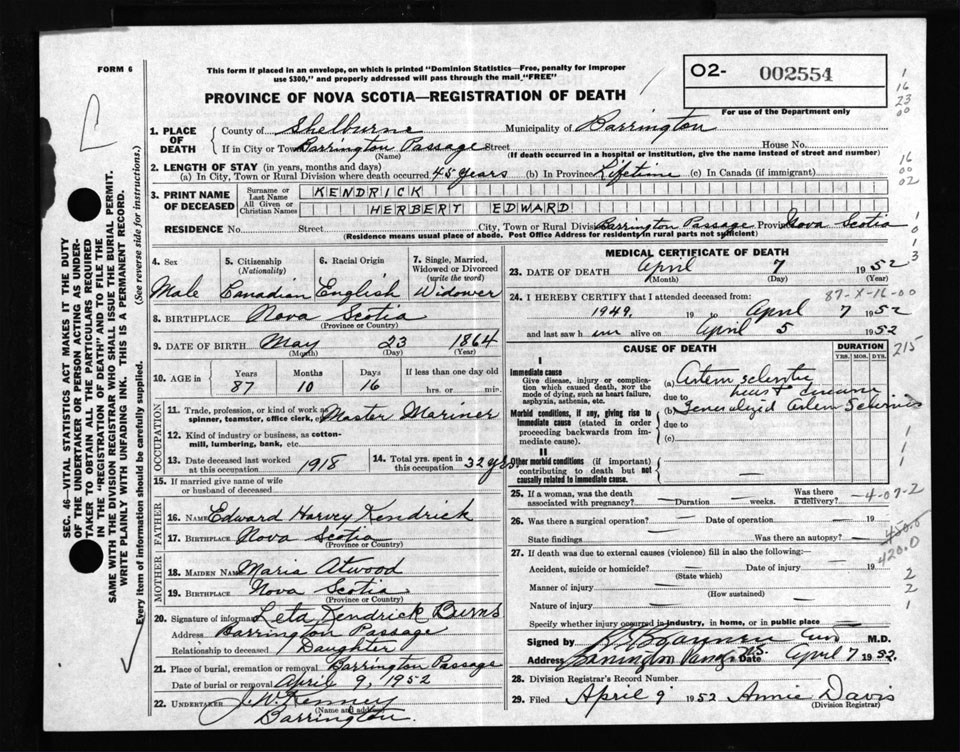 FORM 6
This form if placed in an envelope, on which is printed "Dominion Statistics—Free, penalty for improper
use $300," and properly addressed will pass through the mail "FREE"
O2- 002554
PROVINCE OF NOVA SCOTIA—REGISTRATION OF DEATH
For use of the Department only
1
16
23
00
1. PLACE OF DEATH
County of Shelburne Municipality of Barrington
If in City or Town Barrington Passage Street House No.
(Name) (If death occurred in a hospital or institution, give the name instead of street and number)
2. LENGTH OF STAY (in years, months and days)
(a) In City, Town or Rural Division where death occurred 45 years (b) In Province Lifetime (c) In Canada (if immigrant)
16
00
02
3. PRINT NAME OF DECEASED
Surname or Last Name KENDRICK
All Given or Christian Names HERBERT EDWARD
RESIDENCE No. Street City, Town or Rural Division Barrington Passage Province Nova Scotia
(Residence means usual place of abode. Post Office Address for residents in rural parts not sufficient)
1
0
1
3
SEC. 46—VITAL STATISTICS ACT MAKES IT THE DUTY
OF THE UNDERTAKER OR PERSON ACTING AS UNDER-
TAKER TO OBTAIN ALL THE PARTICULARS REQUIRED
IN THE "REGISTRATION OF DEATH" AND TO FILE THE
SAME WITH THE DIVISION REGISTRAR WHO SHALL ISSUE THE BURIAL PERMIT.
WRITE PLAINLY WITH UNFADING INK. THIS IS A PERMANENT RECORD.
Every item of information should be carefully supplied. (See reverse side for instructions.)
4. Sex
5. Citizenship
(Nationality)
6. Racial Origin
7. Single, Married,
Widowed or Divorced
(write the word)
Male Canadian English Widower
8. BIRTHPLACE Nova Scotia
(Province or Country)
9. DATE OF BIRTH May 23 1864
(Month) (Day) (Year)
10. AGE in
Years Months Days If less than one day old
87 10 16 hrs. or min.
OCCUPATION
11. Trade, profession, or kind of work as
spinner, teamster, office clerk, etc. Master Mariner
12. Kind of industry or business, as cotton-
mill, lumbering, bank, etc.
13. Date deceased last worked
at this occupation 1918
14. Total yrs. spent in
this occupation 32 yrs
15. If married give name of wife
or husband of deceased
FATHER
16. NAME Edward Harvey Kendrick
17. BIRTHPLACE Nova Scotia
(Province or Country)
MOTHER
18. MAIDEN NAME Maria Atwood
19. BIRTHPLACE Nova Scotia
(Province or Country)
20. Signature of informant Leta Kendrick Burns
Address Barrington Passage
Relationship to deceased Daughter
21. Place of burial, cremation or removal Barrington Passage
Date of burial or removal April 9, 1952
22. UNDERTAKER J. W. Kenney
(Name and address)
Barrington.
MEDICAL CERTIFICATE OF DEATH
23. DATE OF DEATH April 7 1952
(Month) (Day) (Year)
87-X-16-00
24. I HEREBY CERTIFY that I attended deceased from:
1949. 19 to April 7 1952
and last saw h im alive on April 5 1952
215
CAUSE OF DEATH
DURATION
YRS. MOS. DYS.
I
Immediate cause
Give disease, injury or compli-
cation which caused death, not the
mode of dying, such as heart failure,
asphyxia, asthenia, etc.
Morbid conditions, if any, giving rise to
immediate cause (stated in order
proceeding backwards from im-
mediate cause).
II
Other morbid conditions (if important)
contributing to death but not
causally related to immediate cause.
(a)
due to heart disease
(b) Generalized
due to
(c)
1
1
25. If a woman, was the death
associated with pregnancy? Duration weeks. Was there
a delivery?
4-07-2
26. Was there a surgical operation? Date of operation 19
State findings Was there an autopsy?
450.0
420.0
27. If death was due to external causes (violence) fill in also the following:
Accident, suicide or homicide? Date of injury 19
(State which)
Manner of injury
(How sustained)
Nature of injury
Specify whether injury occurred in industry, in home, or in public place
2
2
1
Signed by M.D.
Address Barrington Passage N.S. Date April 7 1952.
28. Division Registrar's Record Number
29. Filed April 9 1952 Annie Davis
(Division Registrar)